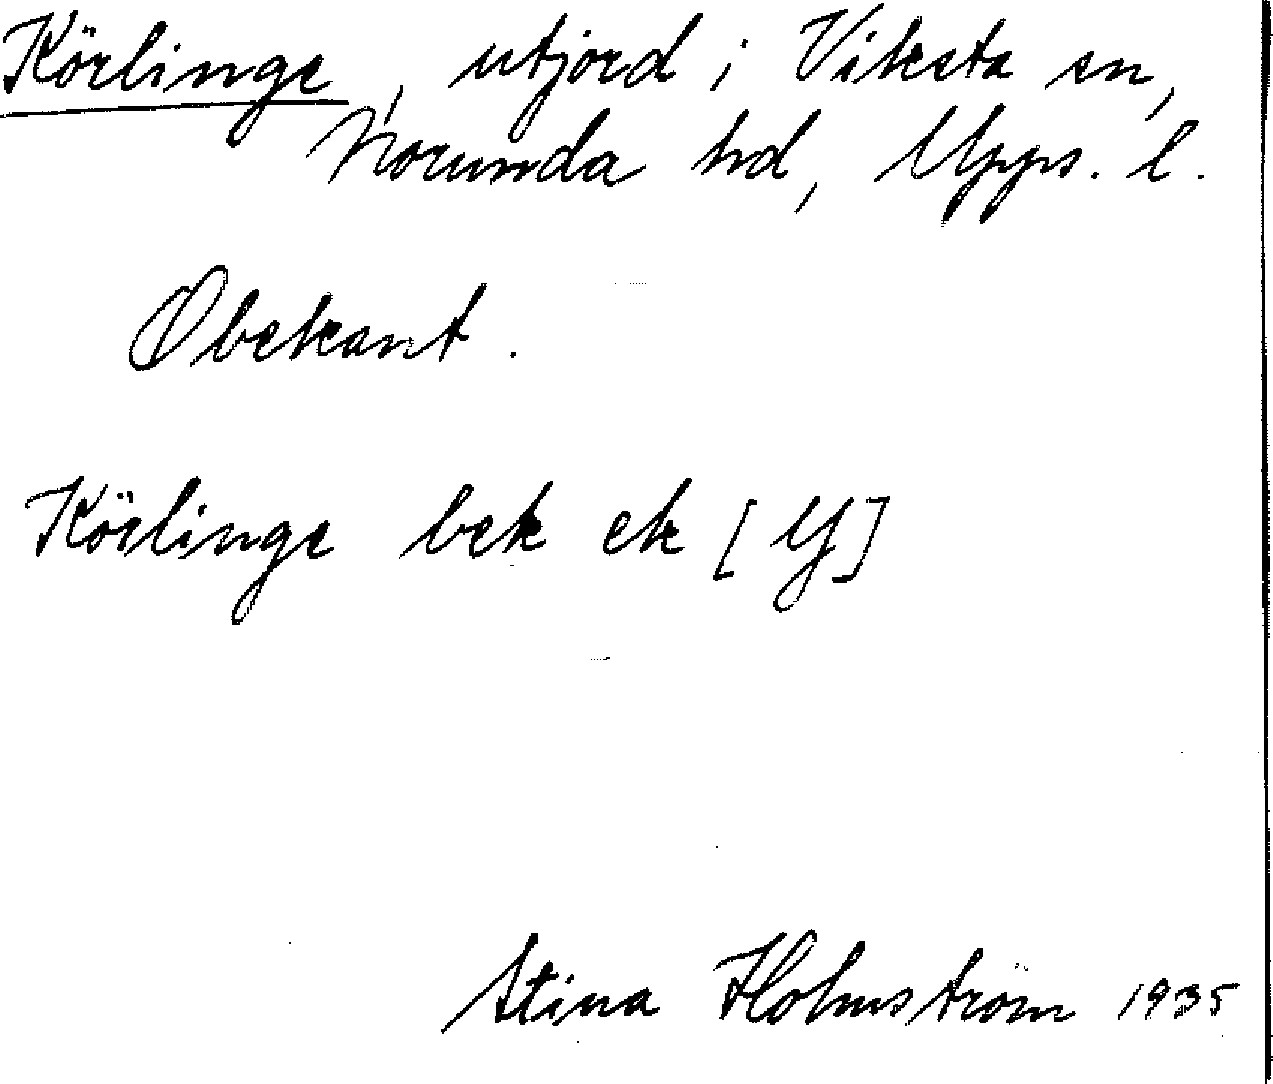 Körlinge, utjord i Viksta sn,
Norunda hd, Upps. l.
Obekant.
Körlinge bek ek [Y]
Stina Holmström 1935